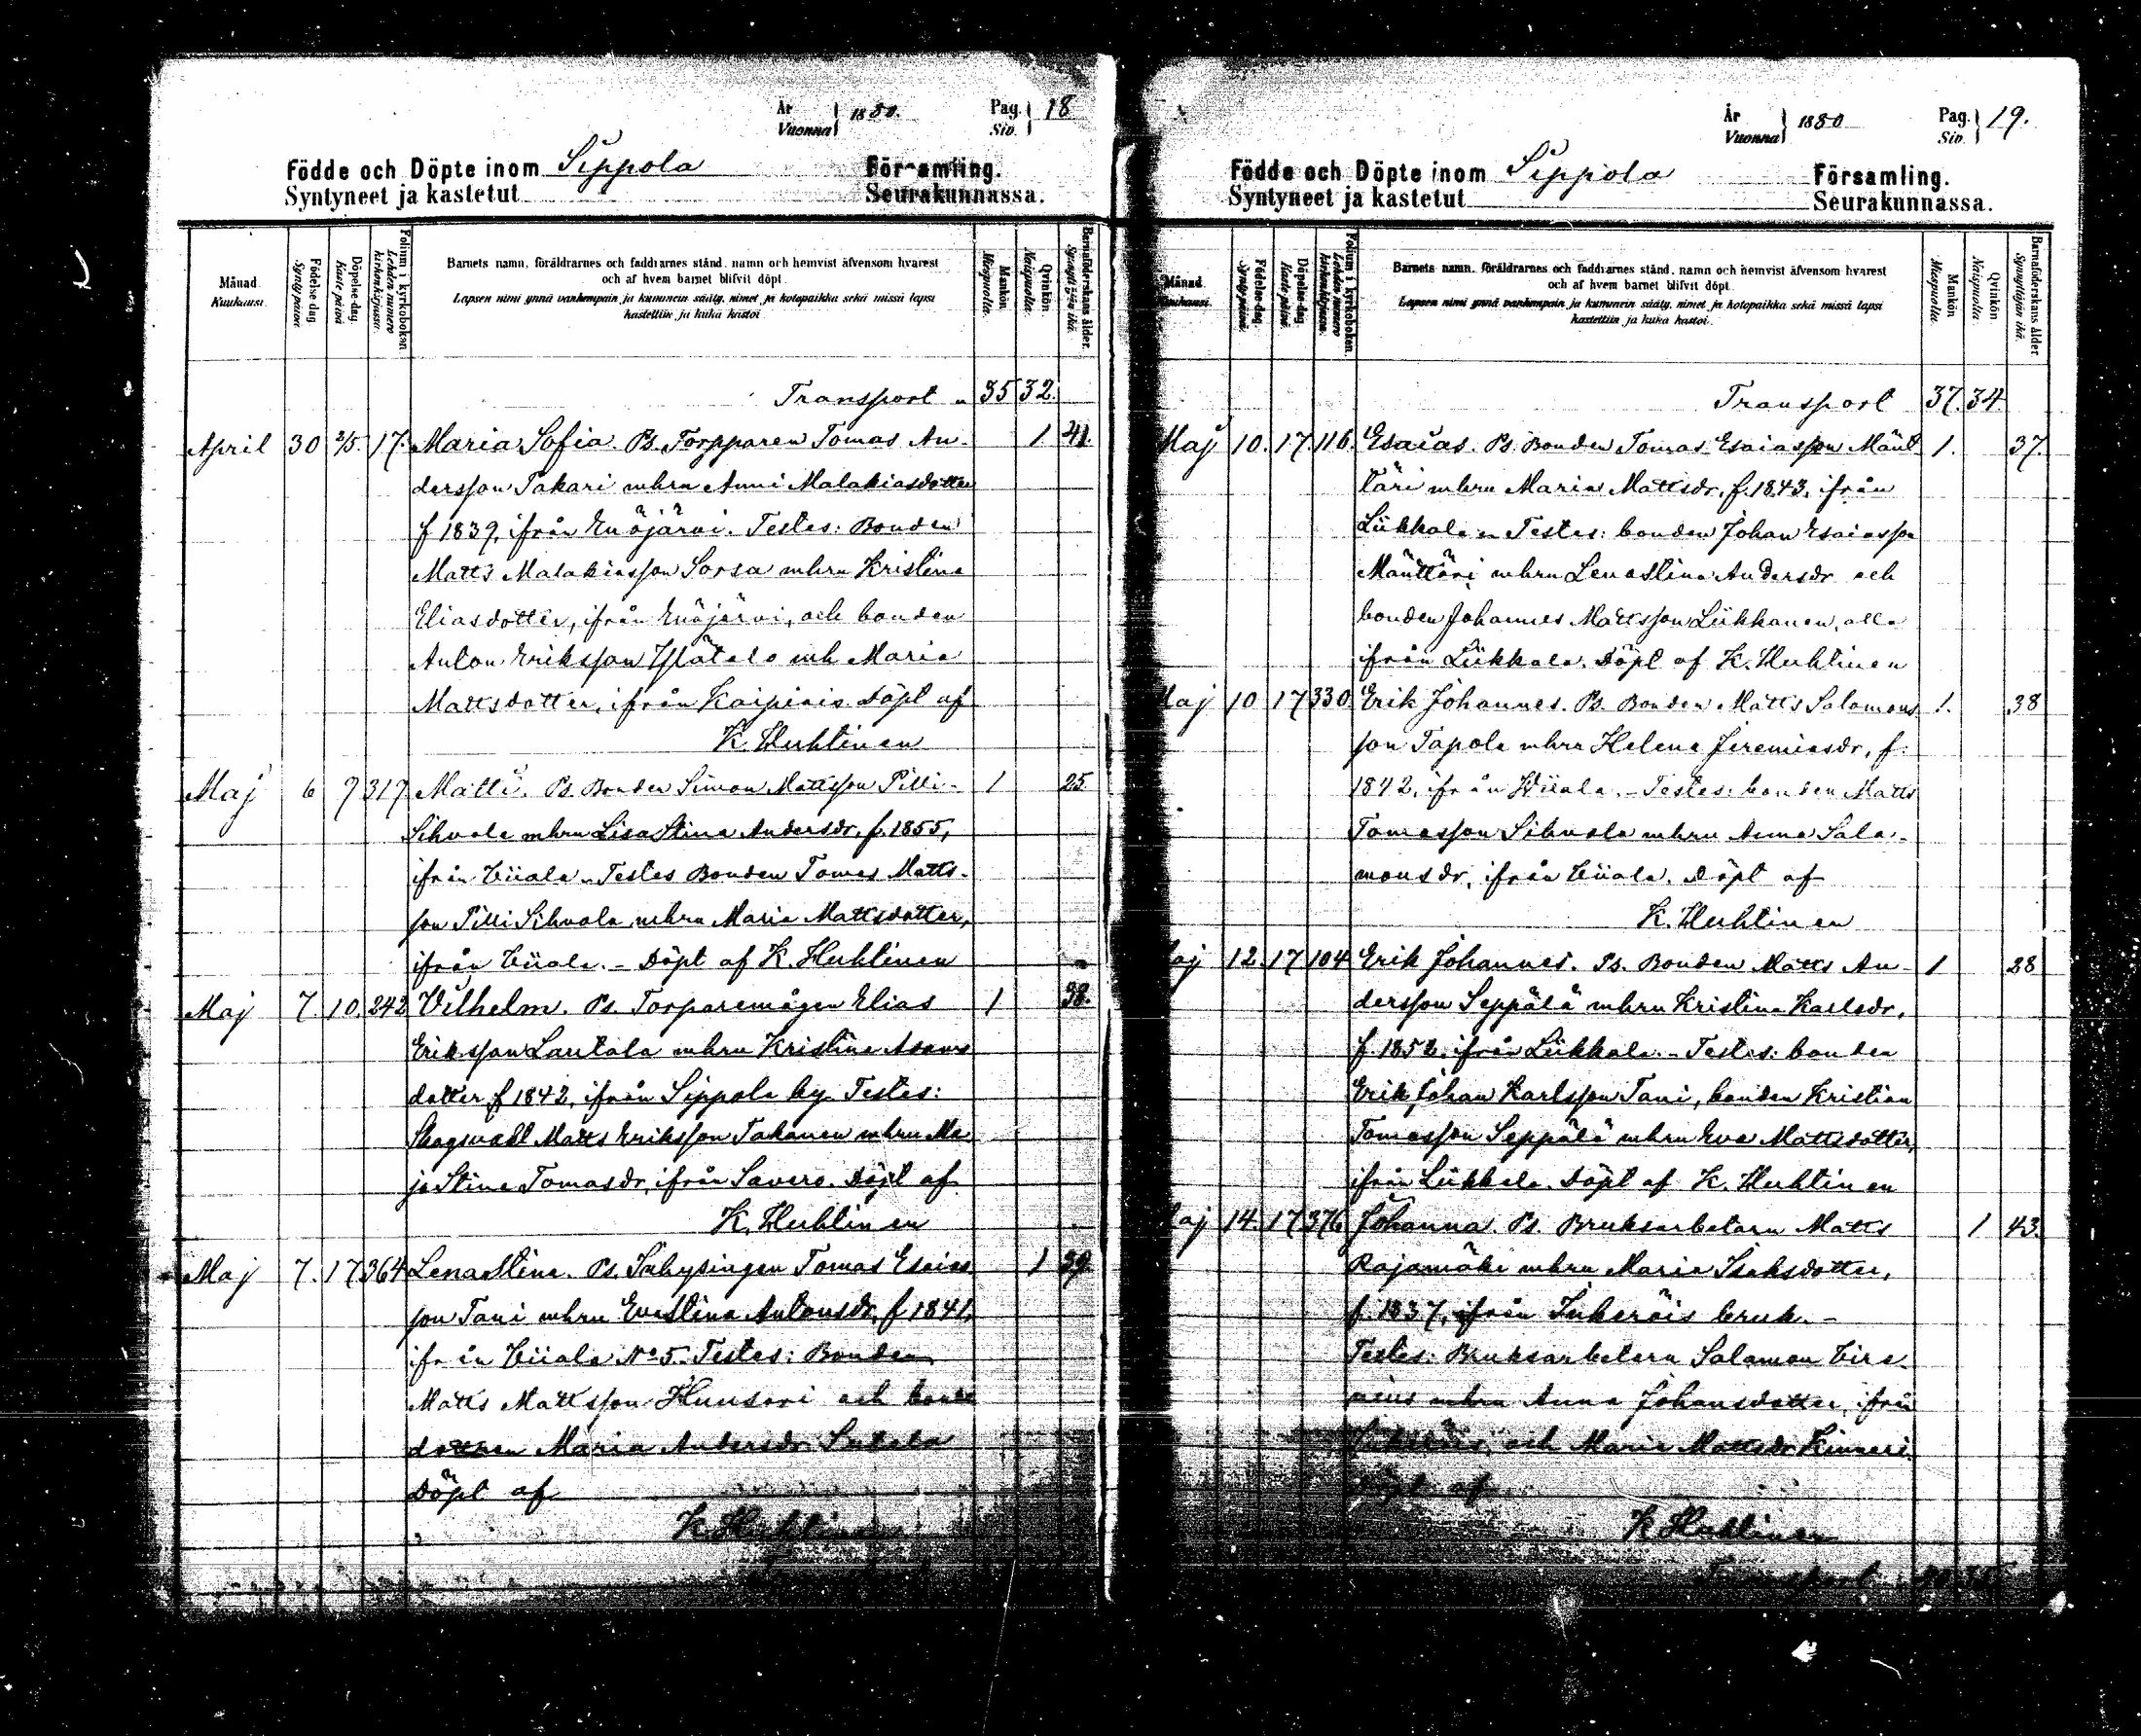 År
Vuonna
1880.
Pag.
Siv.
18
Födde och Döpte inom Sippola Församling.
Syntyneet ja kastetut Seurakunnassa.
Månad.
Kuukausi.
Födelse dag.
Synty päivä
Döpelse-dag.
Kaste päivä
Folium i kyrkoboken
Lehden numero
kirkonkirjassa.
Barnets namn, föräldrarnes och faddrarnes stånd, namn och hemvist äfvensom hvarest
och af hvem barnet blifvit döpt.
Lapsen nimi ynnä vanhempain ja kummein sääty, nimet ja kotopaikka sekä missä lapsi
kastettiin ja kuka kastoi
Mankön
Miespuolia.
Qvinkön
Naispuolia.
Barnaföderskans ålder.
Transport 35 32.
April 30 2/5. 17. Maria Sofia. Ps. Torpparen Tomas An- 1 41.
dersson Takari mhru Anni Malakiasdotter
f 1839, ifrån Enäjärvi. Testes: Bonden
Matts Malakiasson Sorsa mhru Kristina
Eliasdotter, ifrån Enäjärvi, och bonden
Anton Eriksson Ylätalo mh Maria
Mattsdotter, ifrån Kaipiais. Döpt af
K. Huhtinen
Maj 6 7 317 Matti. Ps. Bonden Simon Mattsson Pilli- 1 25.
Sihvola mhru Lisa Stina Andersdr, f. 1855,
ifrån Viiala. Testes Bonden Tomas Matts-
son Pilli Sihvola mhru Maria Mattsdotter,
ifrån Viiala. - Döpt af K. Huhtinen
Maj 7. 10. 242 Vilhelm. Ps. Torparemågen Elias 1 38.
Eriksson Lautala mhru Kristina Adams
dotter f 1842, ifrån Sippola by. Testes:
Matts Eriksson Takanen mhru Ma
ja Stina Tomasdr, ifrån Savero. Döpt af
K. Huhtinen
Maj 7. 17. 364 Lena Stina. Ps. Inhysingen Tomas Esaias 1 39
son Tani mhru Eva Stina Antonsdr, f 1841,
ifrån Viiala No 5. Testes: Bonden
Matts Mattsson Huusari och bonde
dottren Maria Andersdr
Döpt af
K. Huhtinen
År
Vuonna
1880
Pag.
Siv.
19.
Födde och Döpte inom Sippola Församling.
Syntyneet ja kastetut Seurakunnassa.
Månad.
Kuukausi.
Födelse-dag.
Synty päivä.
Döpelse-dag.
Kaste päivä.
Folium i kyrkoboken.
Lehden numero
kirkonkirjassa.
Barnets namn, föräldrarnes och faddrarnes stånd, namn och hemvist äfvensom hvarest
och af hvem barnet blifvit döpt.
Lapsen nimi ynnä vanhempain ja kummein sääty, nimet ja kotopaikka sekä missä lapsi
kastettiin ja kuka kastoi.
Mankön
Miespuolia.
Qvinkön
Naispuolia
Barnaföderskans ålder.
Synnyttäjän ikä.
Transport 37. 34
Maj 10. 17. 116. Esaias. Ps. Bonden Tomas Esaiasson Mänt 1. 37.
täri mhru Maria Mattsdr, f. 1843, ifrån
Liikkala. Testes: bonden Johan Esaiasson
Mänttäri mhru Lena Stina Andersdr och
bonden Johannes Mattsson Liikkanen, alla
ifrån Liikkala. Döpt af K. Huhtinen
Maj 10 17 330. Erik Johannes. Ps. Bonden Matts Salomons 1. 38
son Tapola mhru Helena Jeremiasdr, f.
1842, ifrån Viiala. - Testes: bonden Matts
Tomasson Sihvola mhru Anna Salo-
monsdr, ifrån Viiala. Döpt af
K. Huhtinen
Maj 12. 17 104 Erik Johannes. Ps. Bonden Matts An- 1 28
dersson Seppälä mhru Kristina Karlsdr,
f. 1852, ifrån Liikkala. - Testes: bonden
Erik Johan Karlsson Tani, bonden Kristian
Tomasson Seppälä mhru Eva Mattsdotter,
ifrån Liikkala. Döpt af K. Huhtinen
Maj 14. 17 376 Johanna. Ps. Bruksarbetarn Matts 1 43.
Rajamäki mhru Maria Isaksdotter,
f. 1837, ifrån Inkeröis bruk. -
Testes: Bruksarbetarn Salomon
mhru Anna Johansdotter, ifrån
Inkeröis, och Maria Mattsdr Kinneri.
Döpt af
K. Huhtinen
Transport